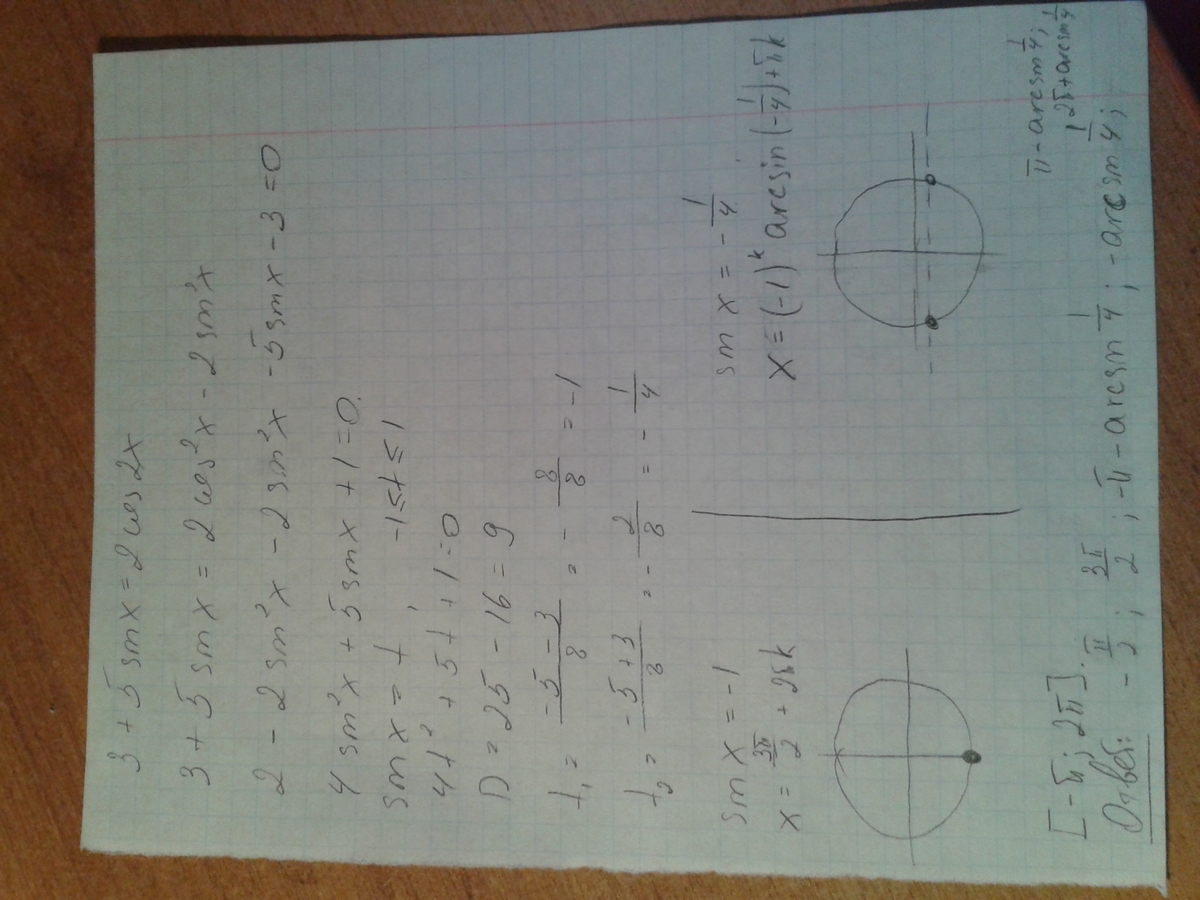 3 + 5 sin x = 2 cos 2x
3 + 5 sin x = 2 cos²x - 2 sin²x
2 - 2 sin²x - 2 sin²x - 5 sin x - 3 = 0
4 sin²x + 5 sin x + 1 = 0.
sin x = t, -1 ≤ t ≤ 1
4t² + 5t + 1 = 0
D = 25 - 16 = 9
t₁ = (-5 - 3)/8 = - 8/8 = -1
t₂ = (-5 + 3)/8 = - 2/8 = - 1/4
sin x = -1
x = 3π/2 + 2πk
sin x = - 1/4
x = (-1)ᵏ arcsin (-1/4) + πk
[-π; 2π].
π - arcsin 1/4;
2π + arcsin 1/4
Ответ: - π/2; 3π/2; -π - arcsin 1/4; - arcsin 1/4;